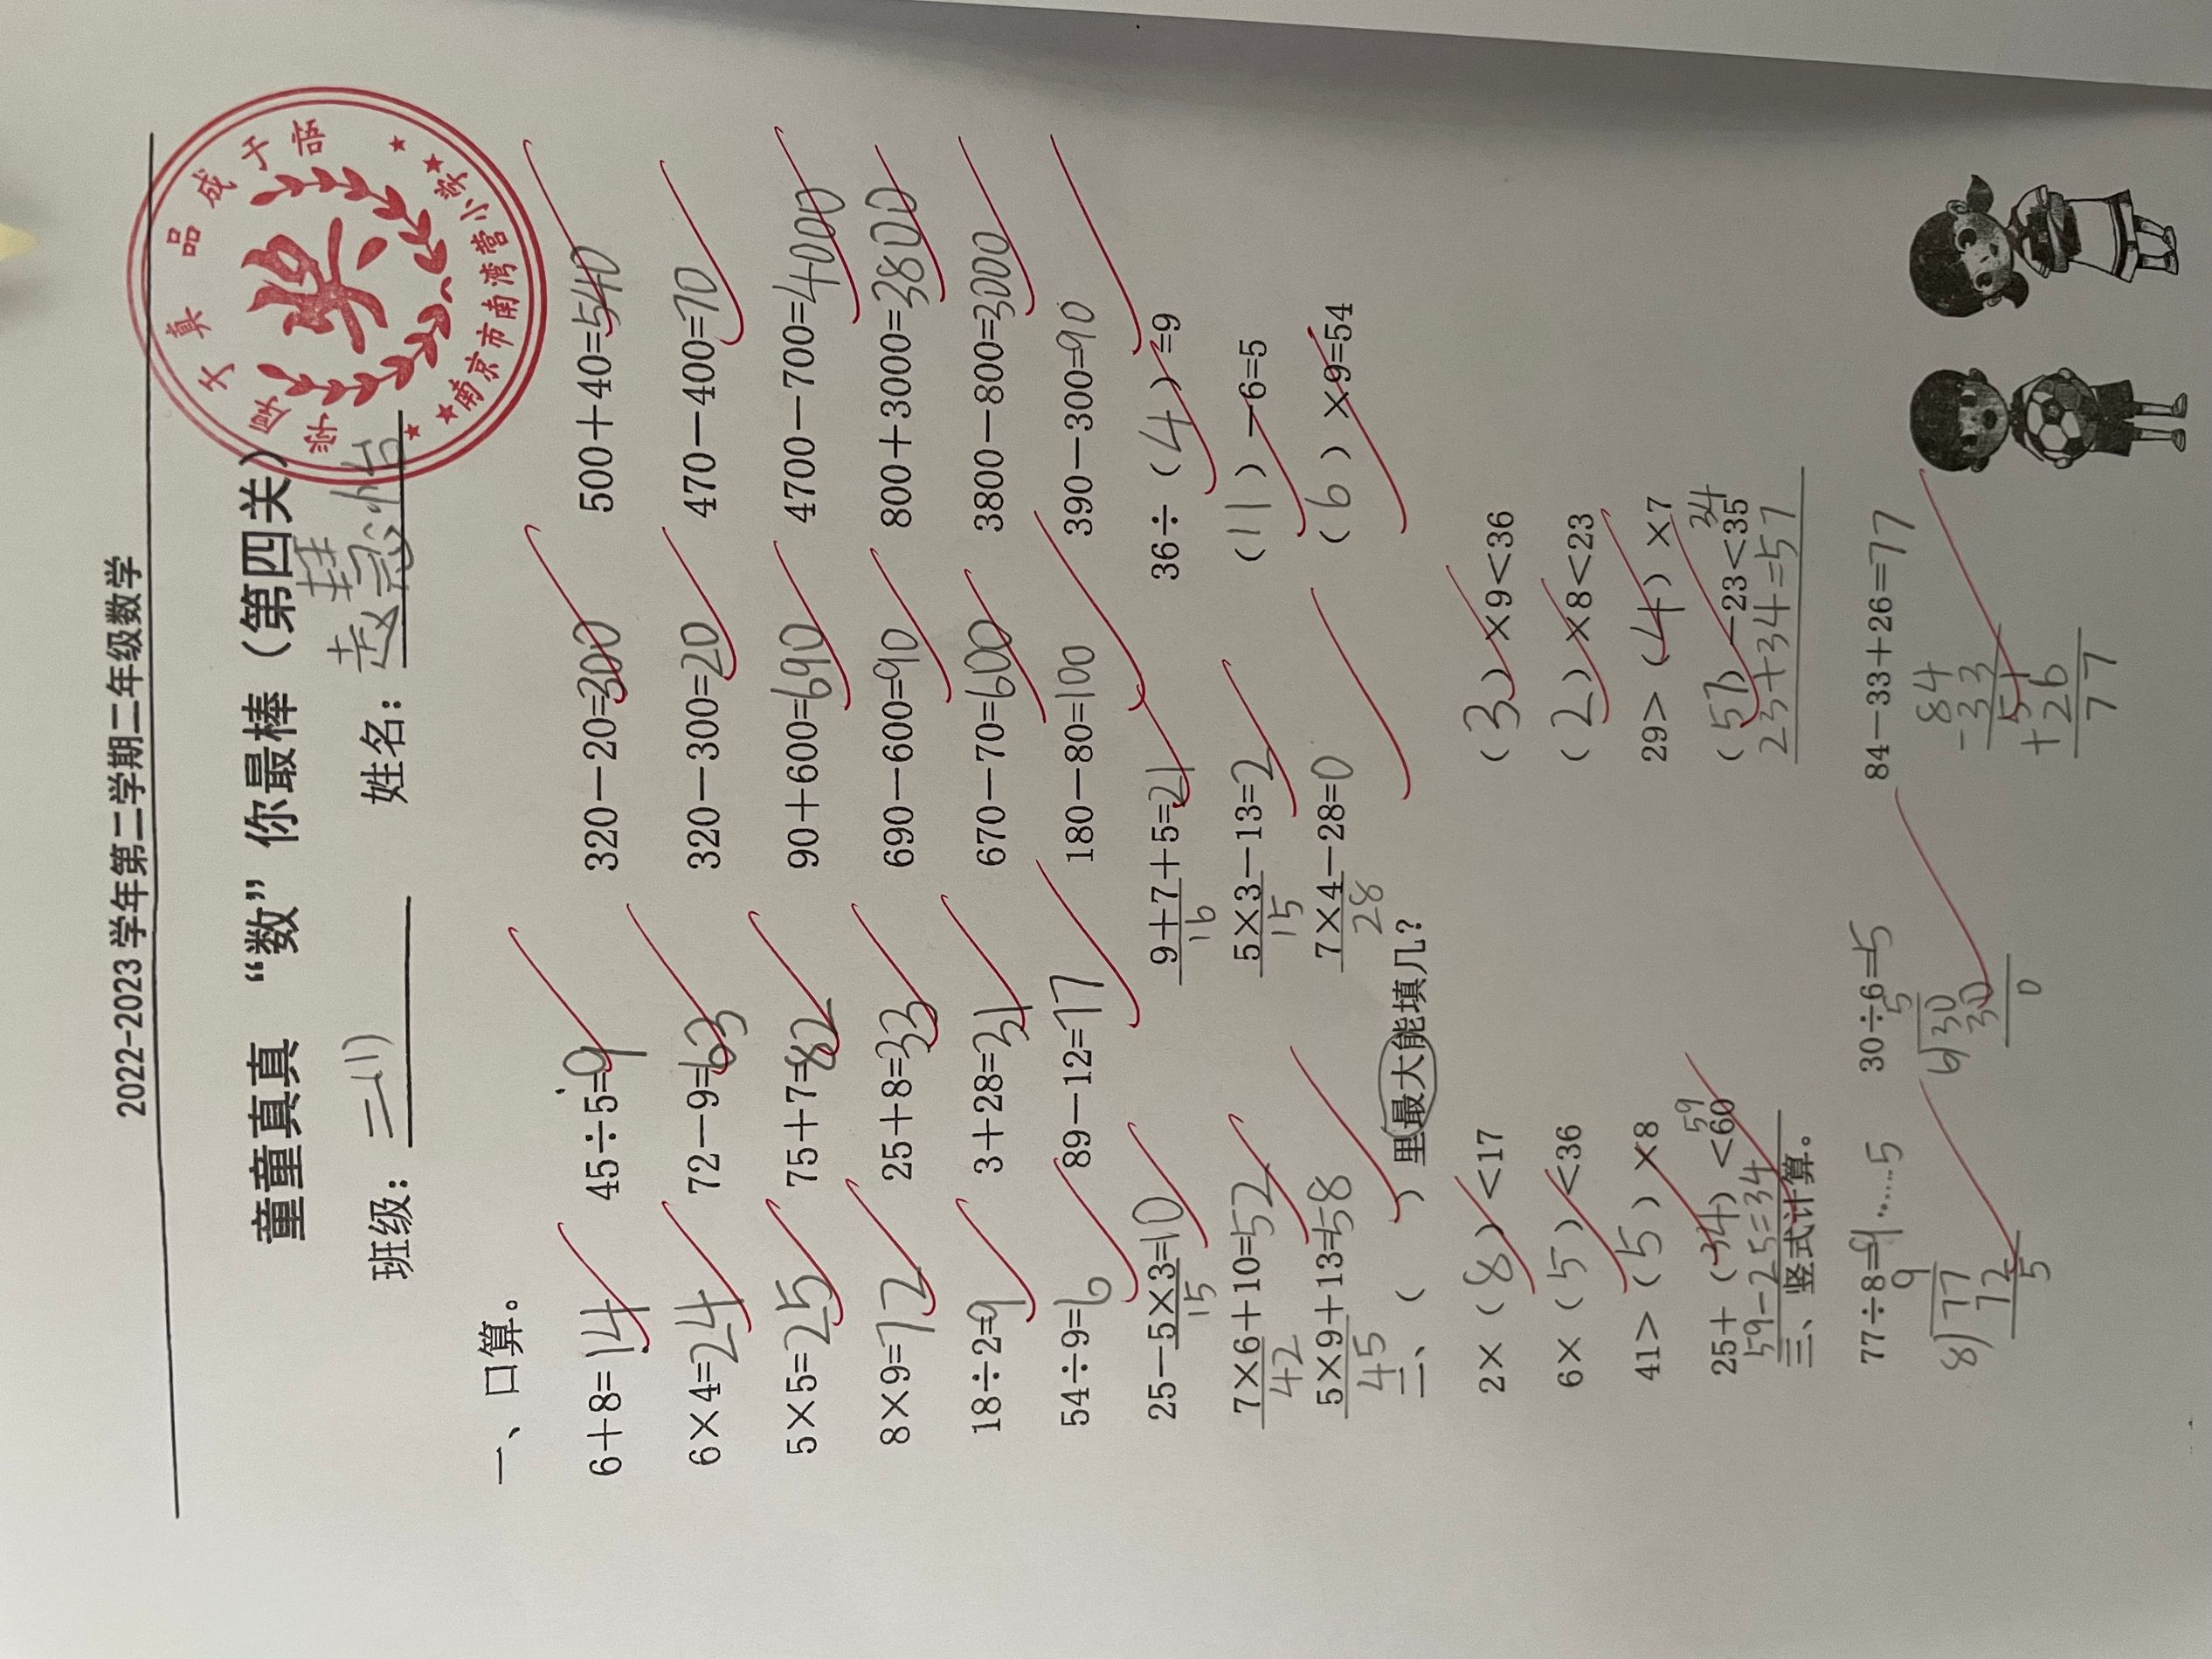 2022-2023 学年第二学期二年级数学
童童真真 “数”你最棒（第四关）
班级：二(1) 姓名：赵慧
奖
品成于悟
南京市南湾营小学
一、口算。
6+8=14 45÷5=9 320-20=300 500+40=540
6×4=24 72-9=63 320-300=20 470-400=70
5×5=25 75+7=82 90+600=690 4700-700=4000
8×9=72 25+8=33 690-600=90 800+3000=3800
18÷2=9 3+28=31 670-70=600 3800-800=3000
54÷9=6 89-12=77 180-80=100 390-300=90
25-5×3=10 9+7+5=21 36÷（4）=9
15 16
7×6+10=52 5×3-13=2 （11）-6=5
42 15
5×9+13=58 7×4-28=0 （6）×9=54
45 28
二、（ ）里最大能填几？
2×（8）<17 （3）×9<36
6×（5）<36 （2）×8<23
41>（5）×8 29>（4）×7
59 34
25+（34）<60 （57）-23<35
59-25=34 23+34=57
三、竖式计算。
77÷8=9……5 30÷6=5 84-33+26=77
9 5 84
8)77 6)30 -33
72 30 51
5 0 +26
77